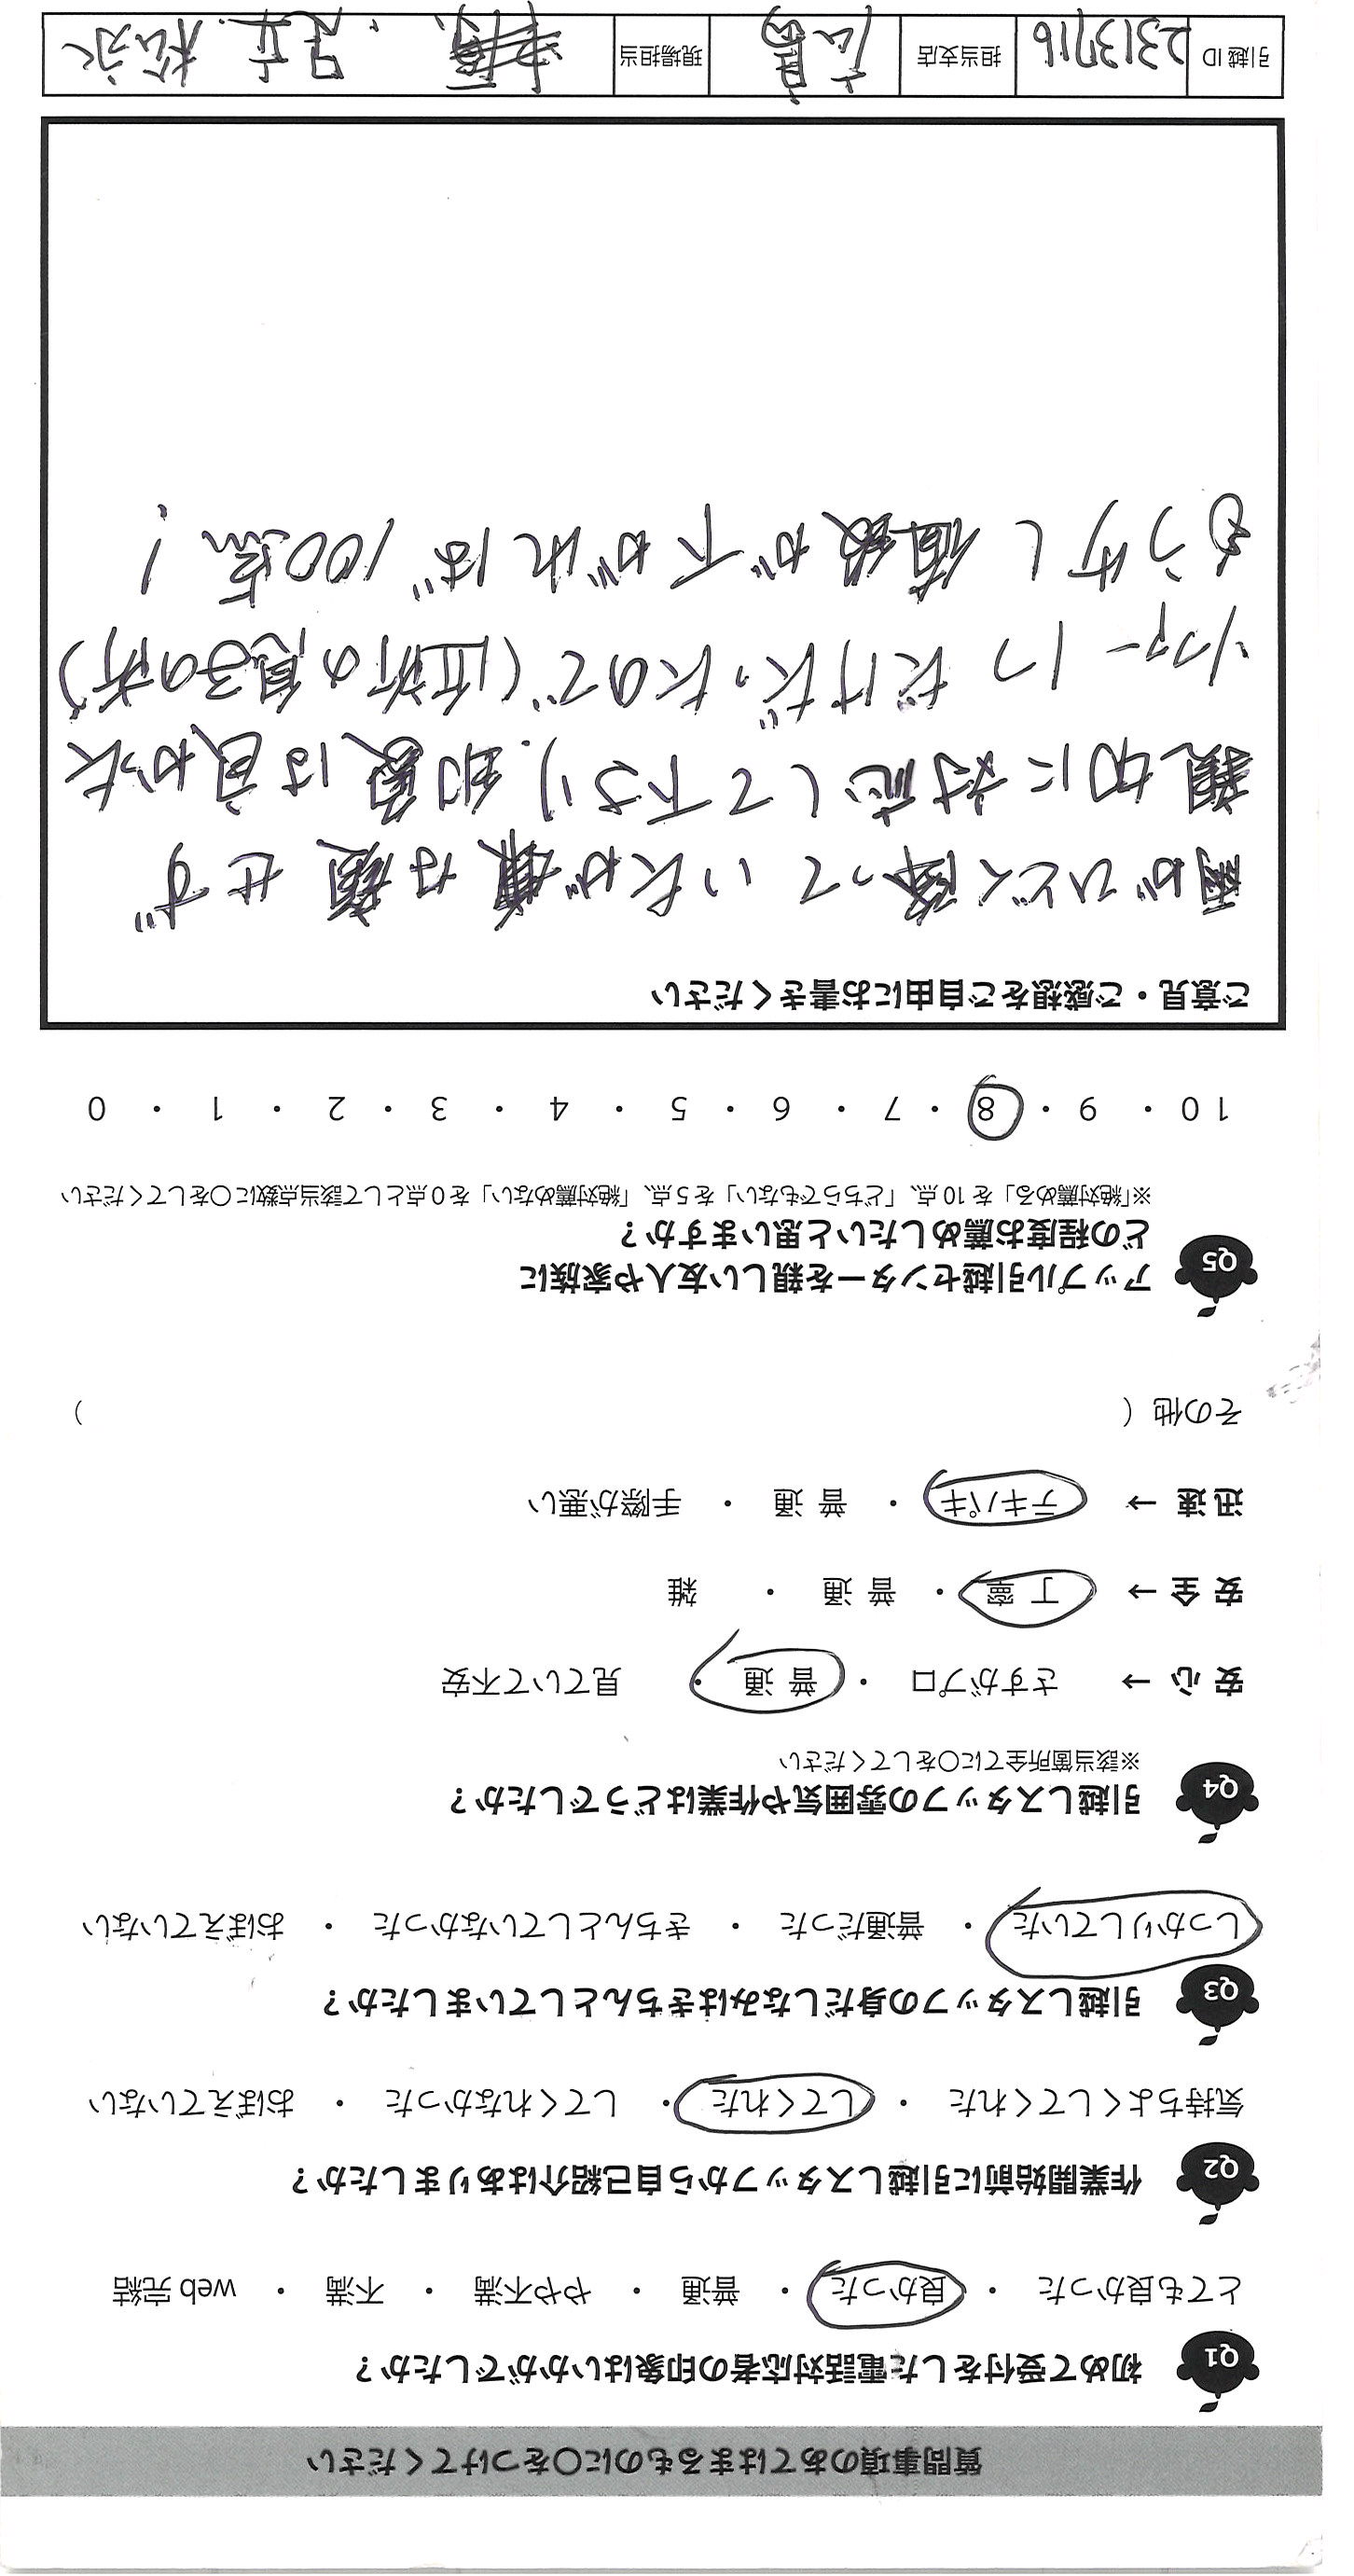 質問事項のあてはまるものに○をつけてください
Q1 初めて受付をした電話対応者の印象はいかがでしたか？
とても良かった ・ 良かった ・ 普通 ・ やや不満 ・ 不満 ・ web 完結
Q2 作業開始前に引越しスタッフから自己紹介はありましたか？
気持ちよくしてくれた ・ してくれた ・ してくれなかった ・ おぼえていない
Q3 引越しスタッフの身だしなみはきちんとしていましたか？
しっかりしていた ・ 普通だった ・ きちんとしていなかった ・ おぼえていない
Q4 引越しスタッフの雰囲気や作業はどうでしたか？
※該当箇所全てに○をしてください
安 心 → さすがプロ ・ 普 通 ・ 見ていて不安
安 全 → 丁 寧 ・ 普 通 ・ 雑
迅 速 → テキパキ ・ 普 通 ・ 手際が悪い
その他（ ）
Q5 アップル引越センターを親しい友人や家族に
どの程度お薦めしたいと思いますか？
※「絶対薦める」を 10 点、「どちらでもない」を 5 点、「絶対薦めない」を 0 点として該当点数に○をしてください
10 ・ 9 ・ 8 ・ 7 ・ 6 ・ 5 ・ 4 ・ 3 ・ 2 ・ 1 ・ 0
ご意見・ご感想をご自由にお書きください
雨がひどく降っていたが嫌な顔せず
親切に対応して下さり、印象は良かった
ソファー1つだけだったので（近所の息子の所）
もう少し値段が下がれば100点！
引越 ID 2313716 担当支店 広島 現場担当 足立、松永